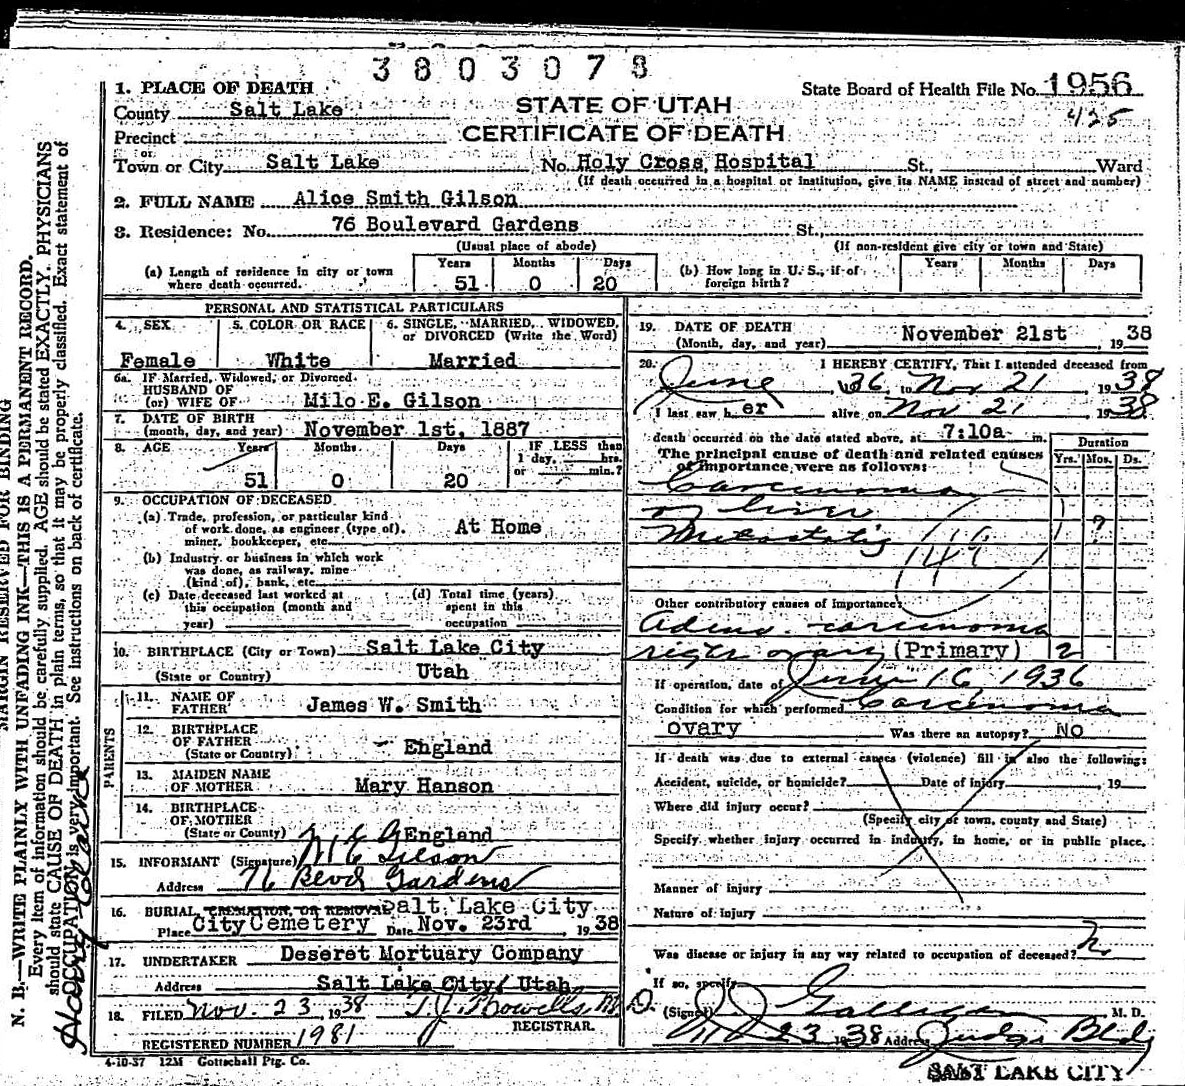 3803078
1. PLACE OF DEATH
State Board of Health File No. 1956
County Salt Lake
STATE OF UTAH
425
Precinct
CERTIFICATE OF DEATH
or
Town or City Salt Lake No. Holy Cross Hospital St., Ward
(If death occurred in a hospital or institution, give its NAME instead of street and number)
2. FULL NAME Alice Smith Gilson
3. Residence: No. 76 Boulevard Gardens St.,
(Usual place of abode) (If non-resident give city or town and State)
(a) Length of residence in city or town where death occurred. Years 51 Months 0 Days 20
(b) How long in U. S., if of foreign birth? Years Months Days
PERSONAL AND STATISTICAL PARTICULARS
4. SEX Female
5. COLOR OR RACE White
6. SINGLE, MARRIED, WIDOWED, or DIVORCED (Write the Word) Married
6a. IF Married, Widowed, or Divorced
HUSBAND OF
(or) WIFE OF Milo E. Gilson
7. DATE OF BIRTH
(month, day, and year) November 1st, 1887
8. AGE Years 51 Months 0 Days 20
IF LESS than 1 day, hrs. or min.?
9. OCCUPATION OF DECEASED
(a) Trade, profession, or particular kind
of work done, as engineer (type of), At Home
miner, bookkeeper, etc.
(b) Industry or business in which work
was done, as railway, mine
(kind of), bank, etc.
(c) Date deceased last worked at this occupation (month and year)
(d) Total time (years) spent in this occupation
10. BIRTHPLACE (City or Town) Salt Lake City
(State or Country) Utah
PARENTS
11. NAME OF
FATHER James W. Smith
12. BIRTHPLACE
OF FATHER England
(State or Country)
13. MAIDEN NAME
OF MOTHER Mary Hanson
14. BIRTHPLACE
OF MOTHER
(State or Country) England
15. INFORMANT (Signature) M E Gilson
Address 76 Blvd Gardens
16. BURIAL, CREMATION, OR REMOVAL Salt Lake City
Place City Cemetery Date Nov. 23rd, 1938
17. UNDERTAKER Deseret Mortuary Company
Address Salt Lake City, Utah
18. FILED Nov. 23, 1938 T. J. Howells, M
REGISTRAR.
REGISTERED NUMBER 1981
4-10-37 12M Gottschall Ptg. Co.
19. DATE OF DEATH
(Month, day, and year) November 21st, 1938
20. I HEREBY CERTIFY, That I attended deceased from
June, 1936 to Nov 21, 1938
I last saw her alive on Nov 21, 1938
death occurred on the date stated above, at 7:10a m.
Duration
The principal cause of death and related causes Yrs. Mos. Ds.
of importance were as follows:
Carcinoma
of liver ?
Metastatic
Other contributory causes of importance:
Adeno-carcinoma
right ovary (Primary) 2
If operation, date of June 16, 1936
Condition for which performed Carcinoma
ovary Was there an autopsy? No
If death was due to external causes (violence) fill in also the following:
Accident, suicide, or homicide? Date of injury 19
Where did injury occur?
(Specify city or town, county and State)
Specify whether injury occurred in industry, in home, or in public place.
Manner of injury
Nature of injury
Was disease or injury in any way related to occupation of deceased?
If so, specify
(Signed) Galligan, M. D.
23 1938 Address Judge Bldg
SALT LAKE CITY
MARGIN RESERVED FOR BINDING
N. B.—WRITE PLAINLY WITH UNFADING INK—THIS IS A PERMANENT RECORD.
Every item of information should be carefully supplied. AGE should be stated EXACTLY. PHYSICIANS
should state CAUSE OF DEATH in plain terms, so that it may be properly classified. Exact statement of
OCCUPATION is very important. See instructions on back of certificate.